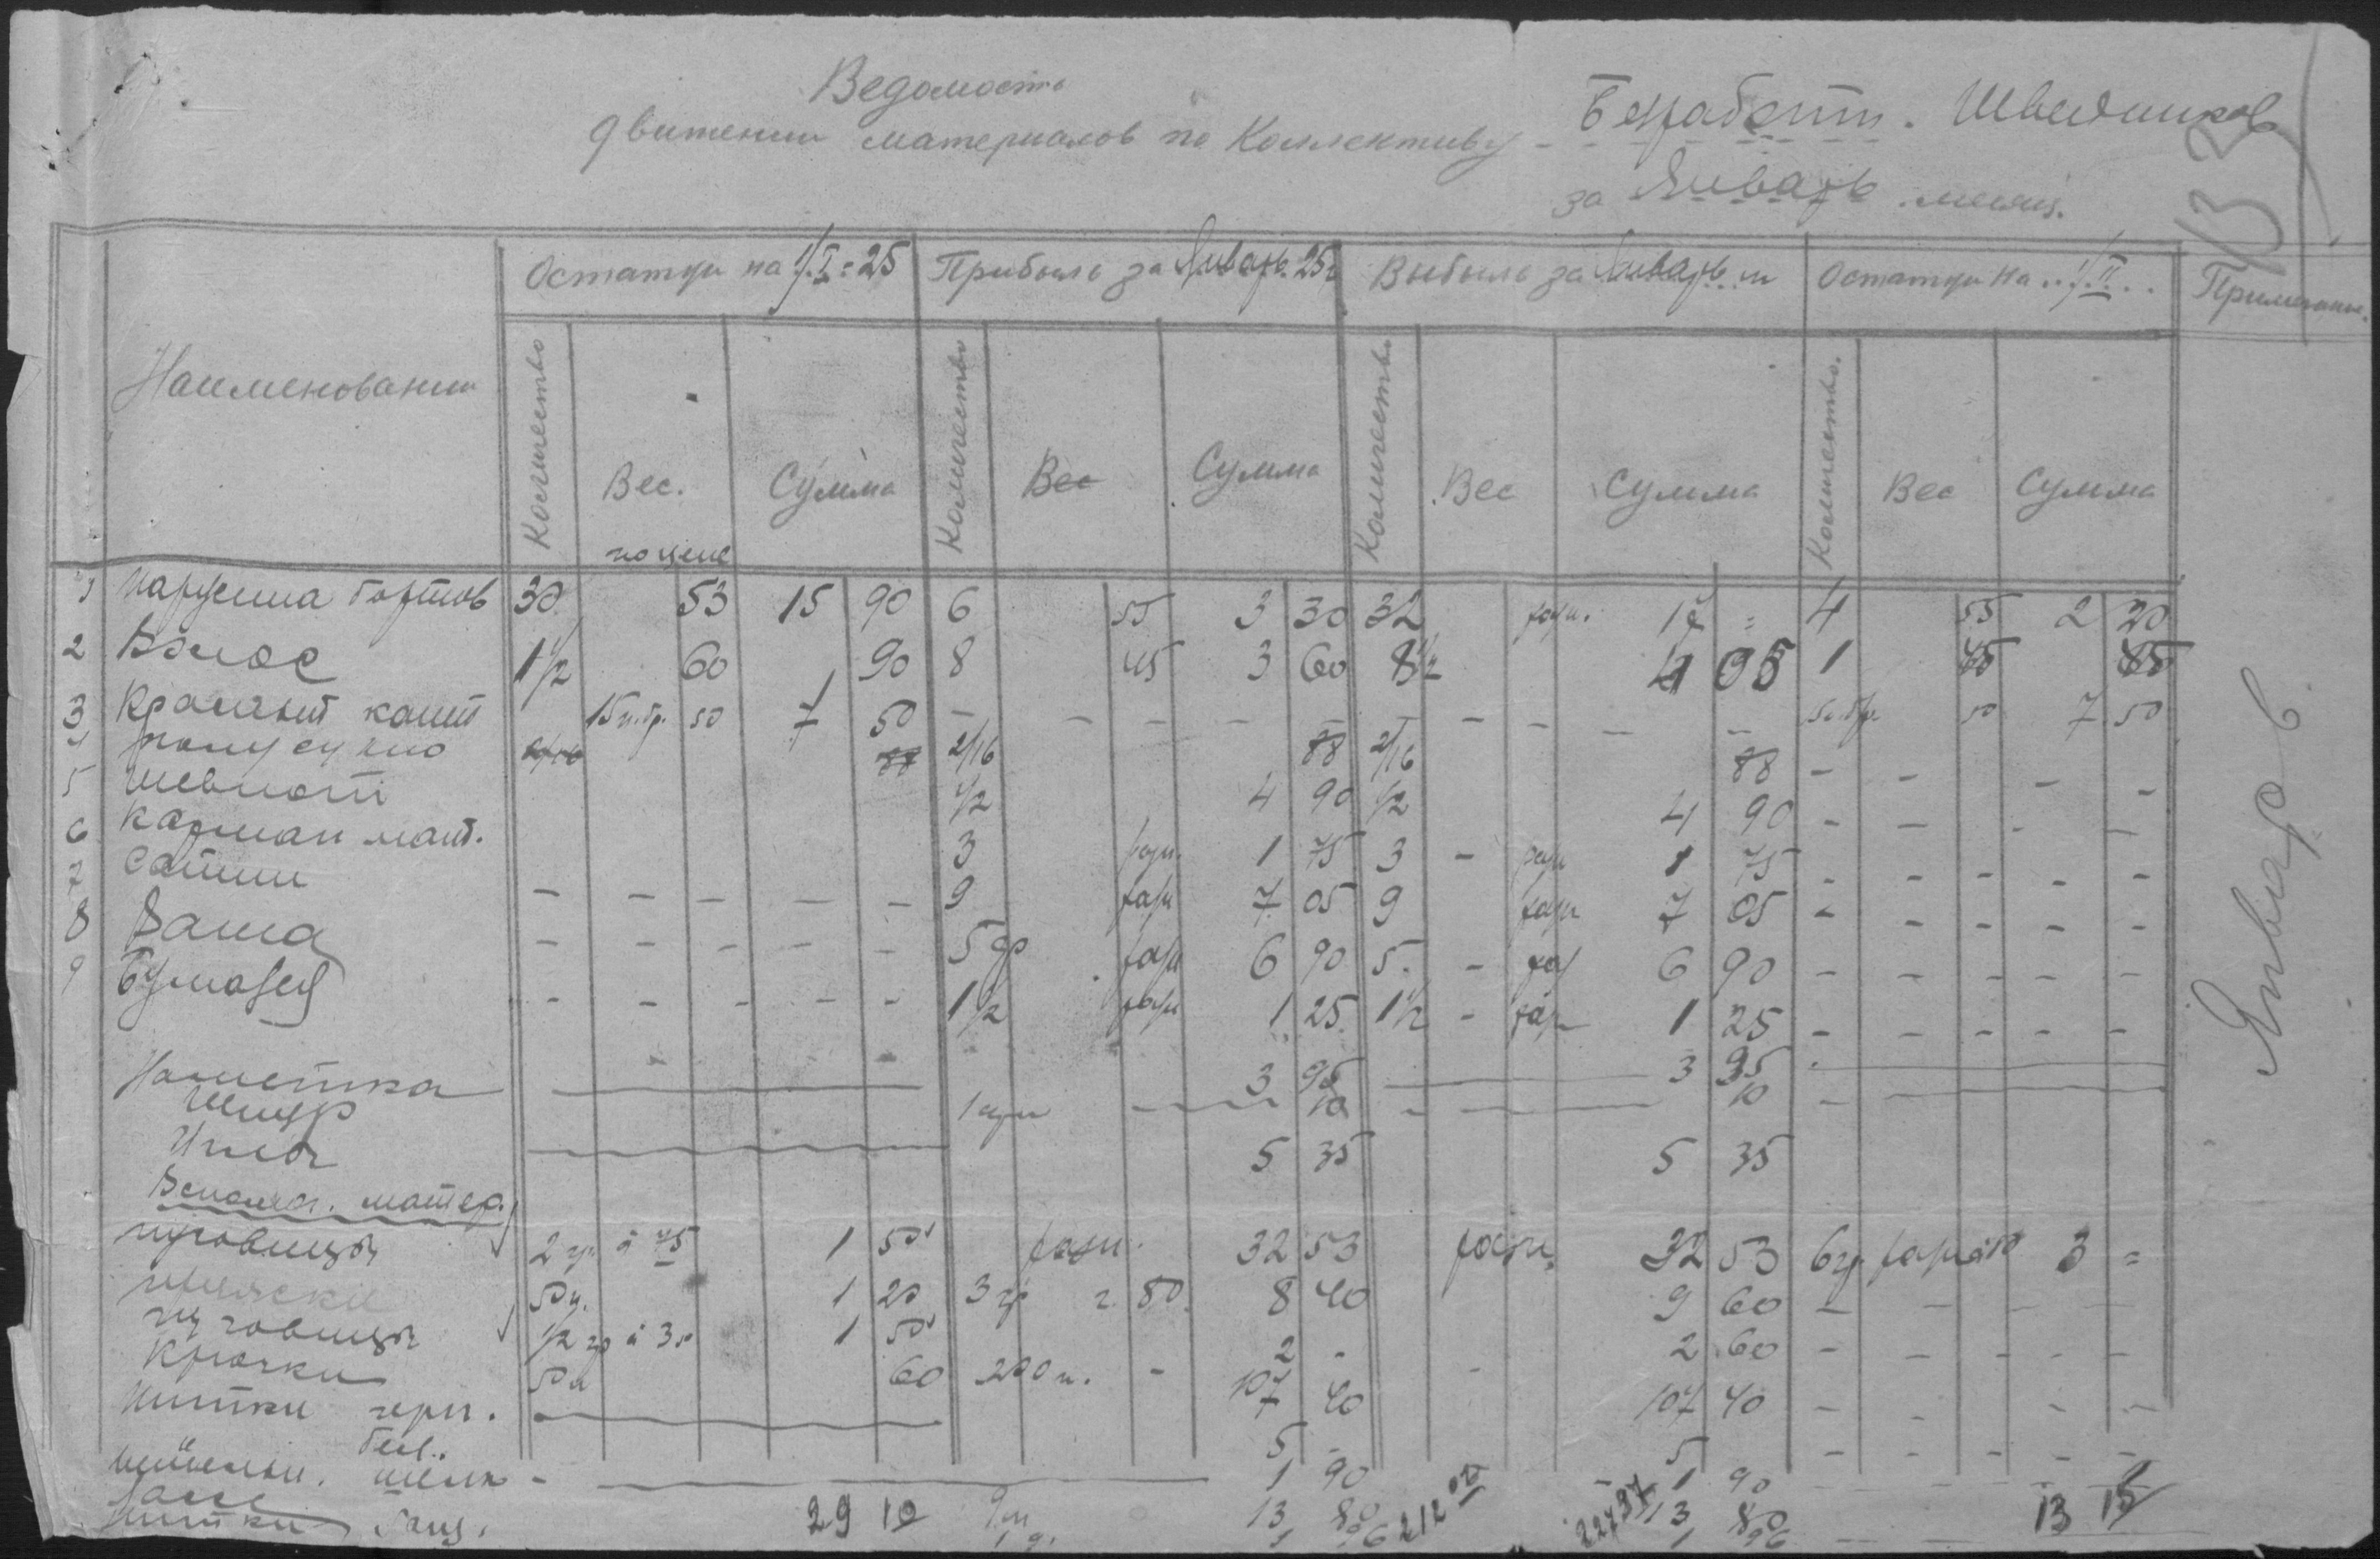 Ведомость
движении материалов по Коллективу Безработн. Швейников
за Январь месяц.
13
Наименовании
Остатки на 1/I=25
Прибыло за Январь 25г
Выбыло за Январь м
Остатки на 1/II
Примечание.
Количество Вес. Сумма Количество Вес Сумма Количество Вес Сумма Количество. Вес Сумма
по цене
1 парусина бортов 30. 53 15 90 6 55 3 30 32 разн. 17 = 4 55 2 20
2 Волос 1 1/2 60 90 8 45 3 60 8 1/2 4 05 1 45 45
3 50 7 50 - - - - - - - - - 50 7 50
4 полусукно 88 2/16 88 2/16 88 - - - -
5 шевиот 1/2 4 90 1/2 4 90 - - - -
6 карман мат. 3 разн. 1 75 3 - разн 1 75 - - - - -
7 Сатин - - - - - 9 разн 7 05 9 разн 7 05 - - - - -
8 Вата - - - - - 5 разн 6 90 5. - раз 6 90 - - - - -
9 - - - - - 1 1/2 разн 1 25 1 1/2 - разн 1 25 - - - - -
Наметка 3 95 3 95
Шнур 10 10 -
Иглы 5 35 5 35
Вспомог. матер.
пуговицы 2 гр. à 75 1 50 разн. 32 53 разн. 32 53 6 гр. 3 =
50 1 20 3 80 8 40 9 60 - - - -
пуговицы 1/2 гр à 3 1 50 2 - 2 60 - - - - -
Крючки 50 60 200 - 107 40 107 40 - - - -
Нитки черн.
бел. 5 - 5 - - - - -
шелк - 1 90 1 90
29 10 13 80 212 02 227 97 13 80 13 15
Нитки 1 96 1 96
Январь